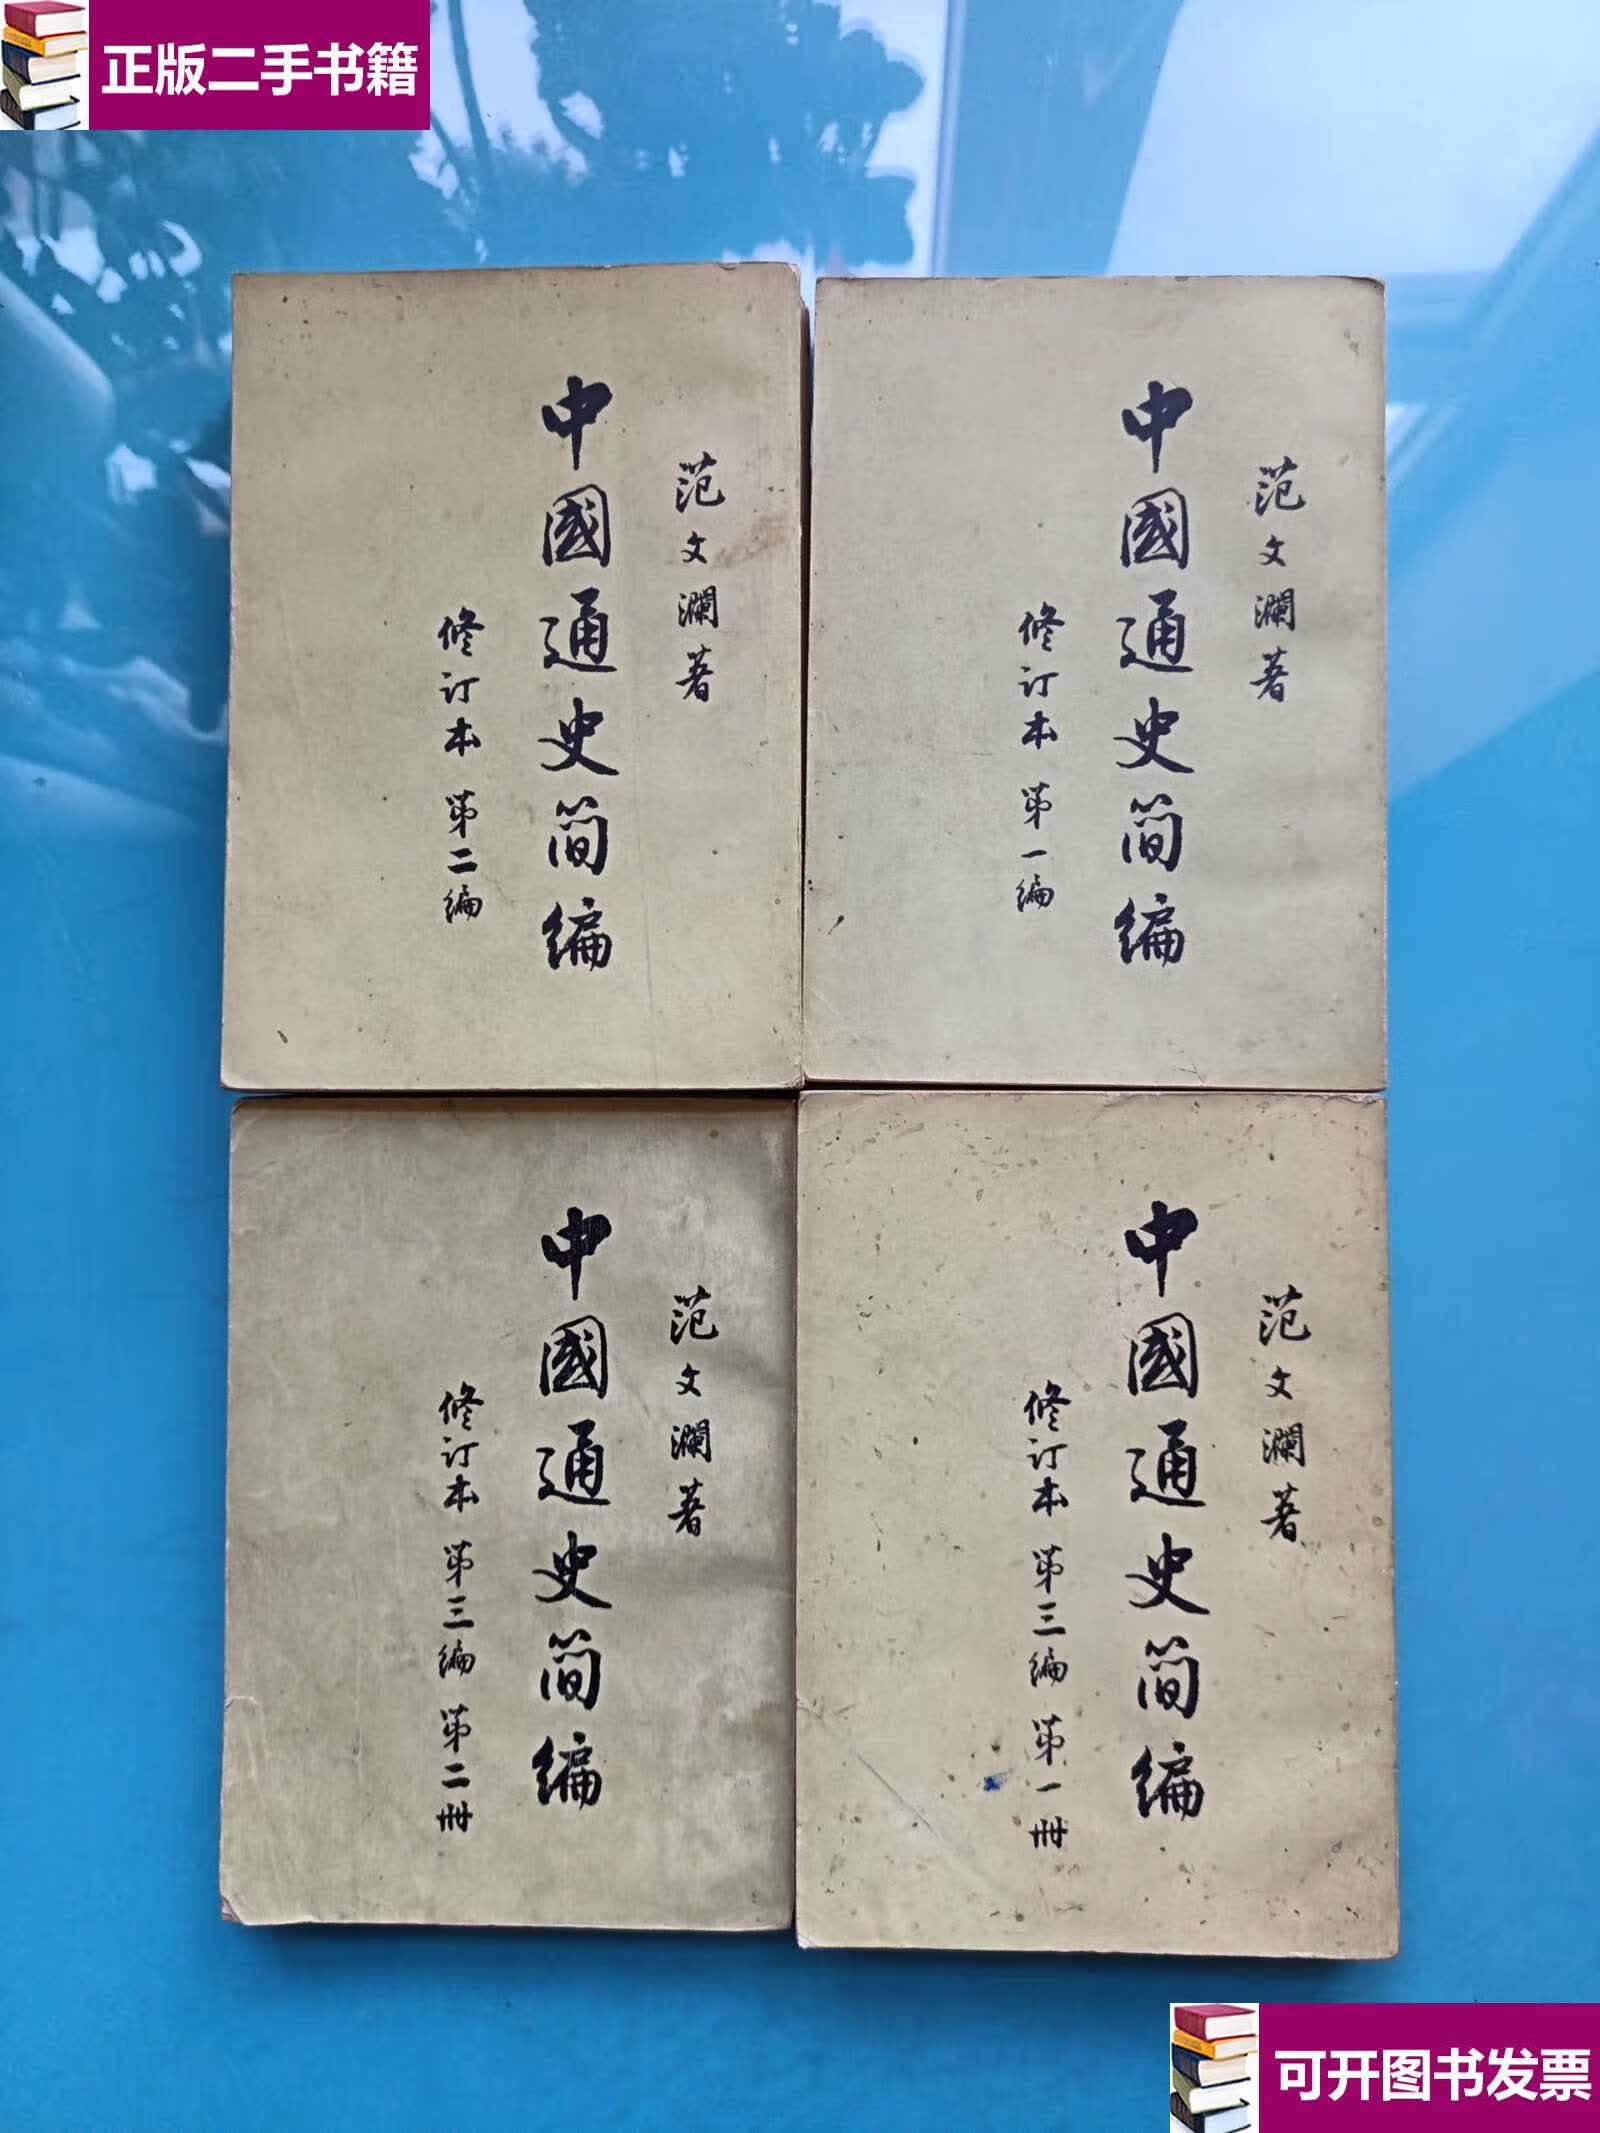 正版二手书籍
范文瀾著
中國通史简编
修订本 第二编
范文瀾著
中國通史简编
修订本 第一编
范文瀾著
中國通史简编
修订本 第三编 第二册
范文瀾著
中國通史简编
修订本 第三编 第一册
可开图书发票